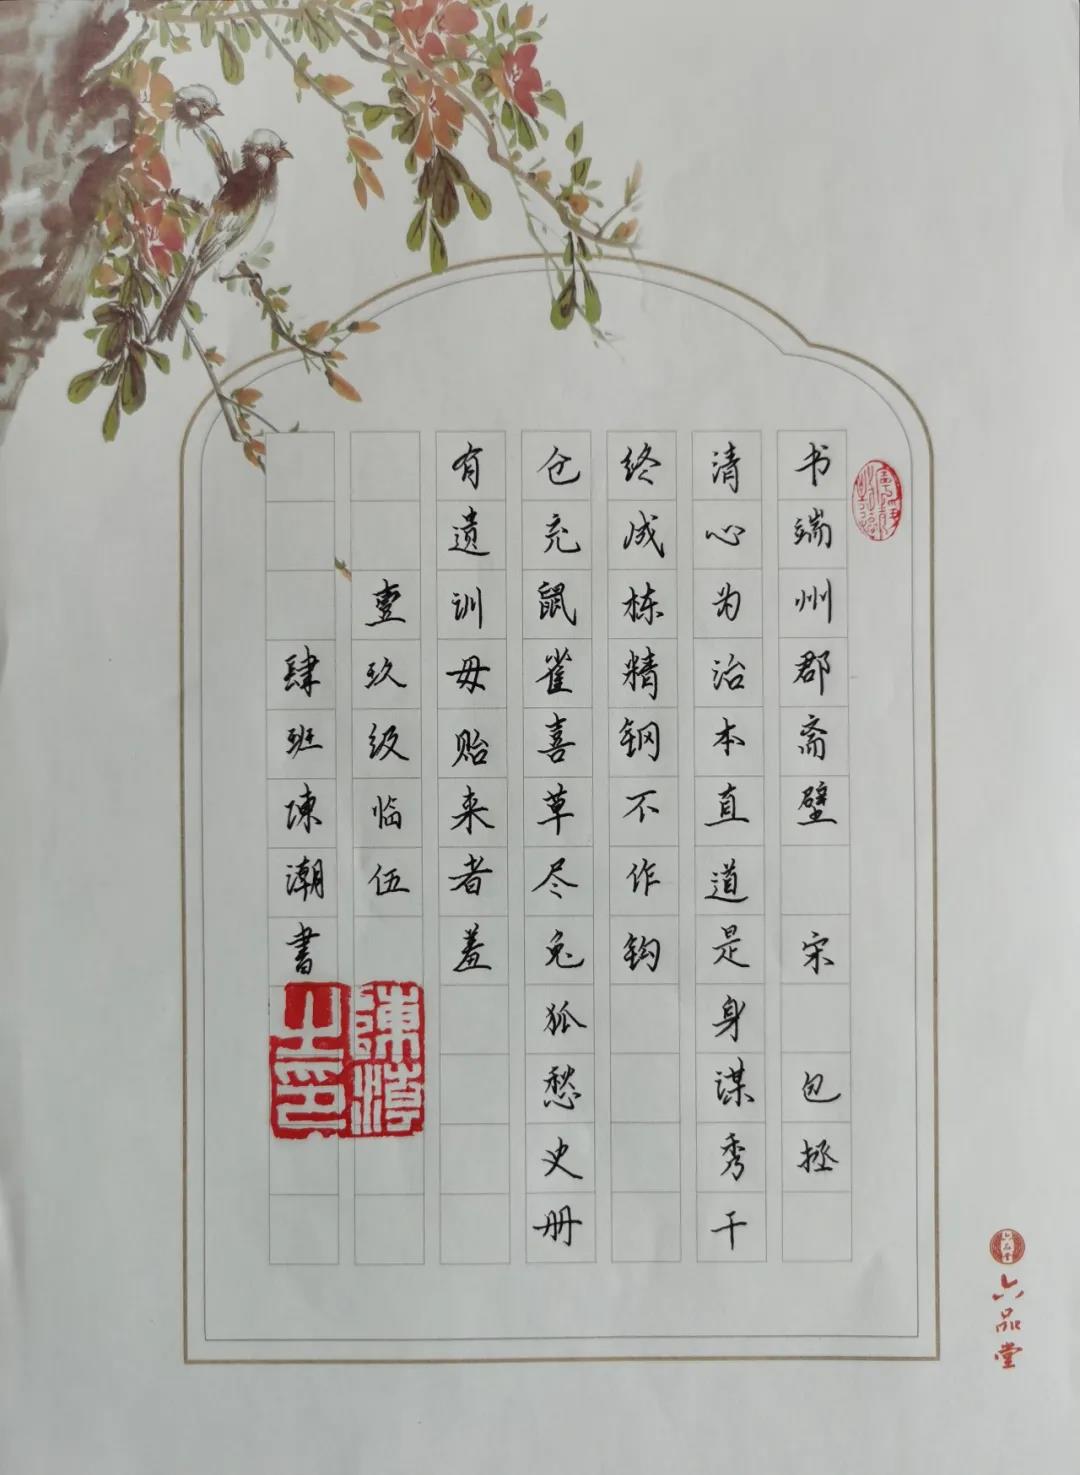 书端州郡斋壁 宋 包拯
清心为治本直道是身谋秀干
终成栋精钢不作钩
仓充鼠雀喜草尽兔狐愁史册
有遗训毋贻来者羞
壹玖级临伍
肆班陈潮書
陳潮
之印
六品堂
六品堂